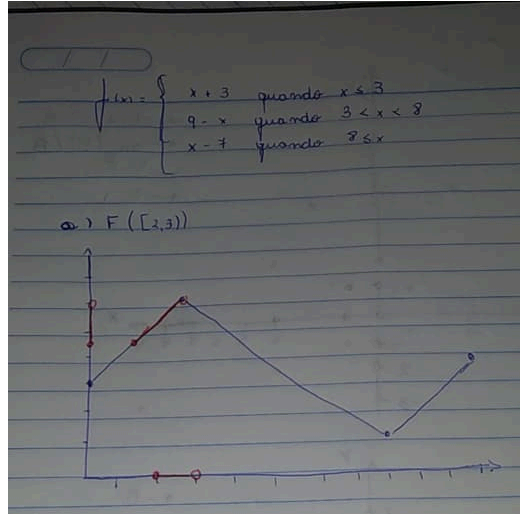 f(x) = { x + 3 quando x ≤ 3
9 - x quando 3 < x < 8
x - 7 quando 8 ≤ x
a) F ([2,3))